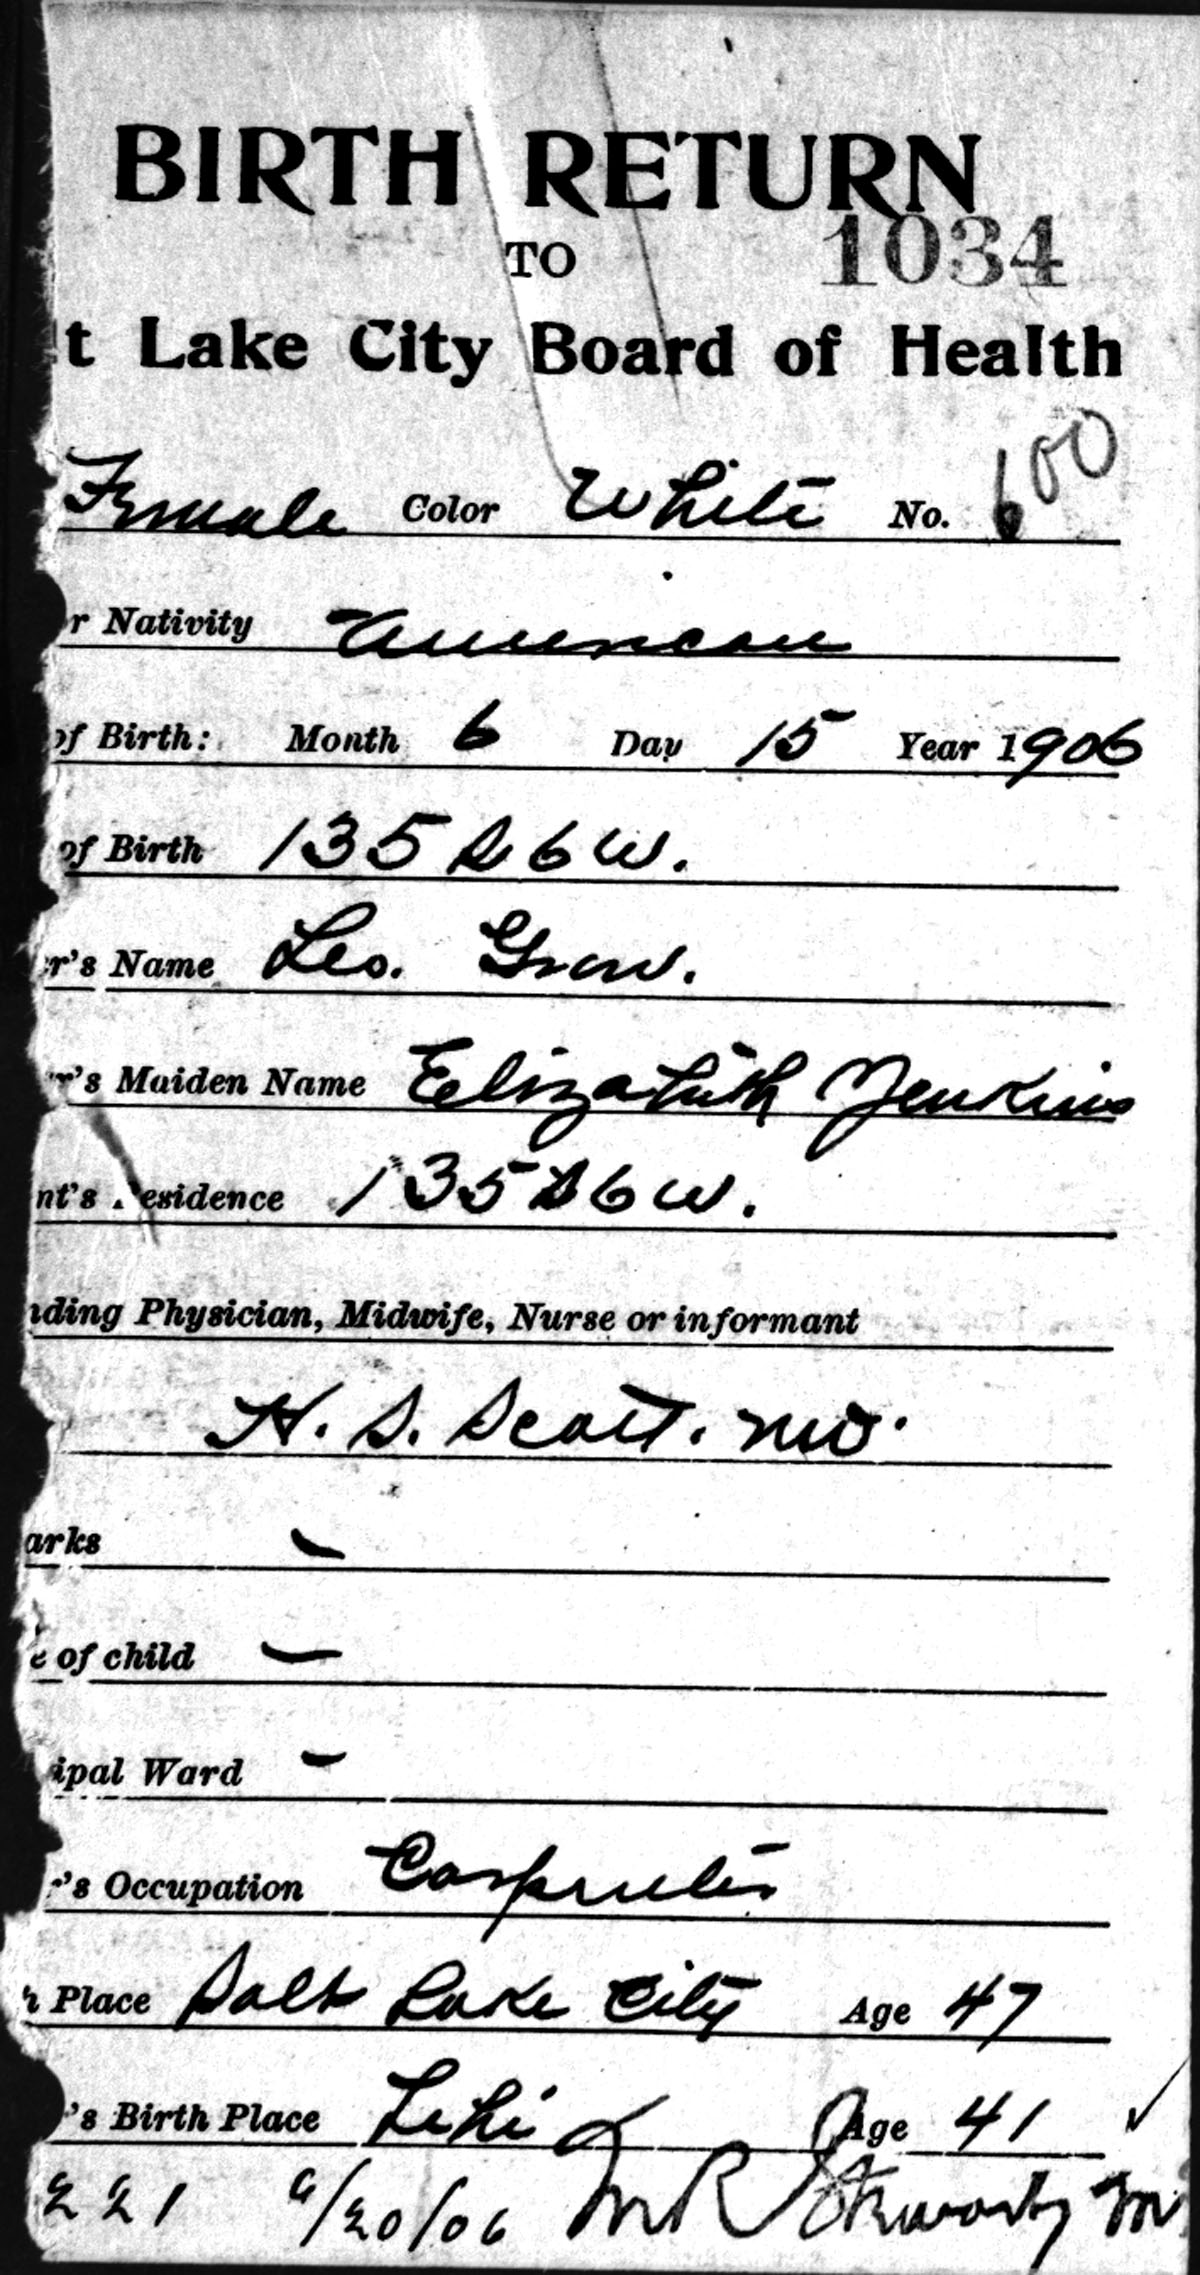 BIRTH RETURN
TO 1034
t Lake City Board of Health
Female Color White No. 600
r Nativity American
of Birth: Month 6 Day 15 Year 1906
of Birth 135 S 6 W.
r's Name Leo. Grow.
r's Maiden Name Elizabeth Jenkins
nt's Residence 135 S 6 W.
ding Physician, Midwife, Nurse or informant
H. S. Scott. MD.
arks –
e of child –
ipal Ward –
r's Occupation Carpenter
h Place Salt Lake City Age 47
's Birth Place Lehi Age 41 ✓
221 6/20/06 M R Stewart M